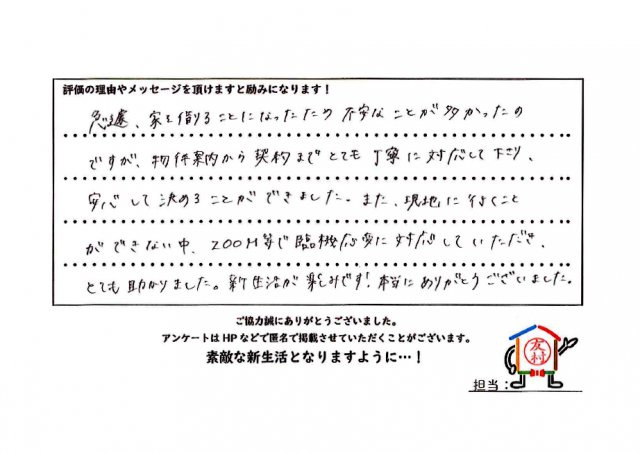 評価の理由やメッセージを頂けますと励みになります！
急遽、家を借りることになったため不安なことが多かったの
ですが、物件案内から契約までとても丁寧に対応して下さり、
安心して決めることができました。また、現地に行くこと
ができない中、ZOOM等で臨機応変に対応していただき、
とても助かりました。新生活が楽しみです！本当にありがとうございました。
ご協力誠にありがとうございました。
アンケートはHPなどで匿名で掲載させていただくことがございます。
素敵な新生活となりますように…！
友村
担当：